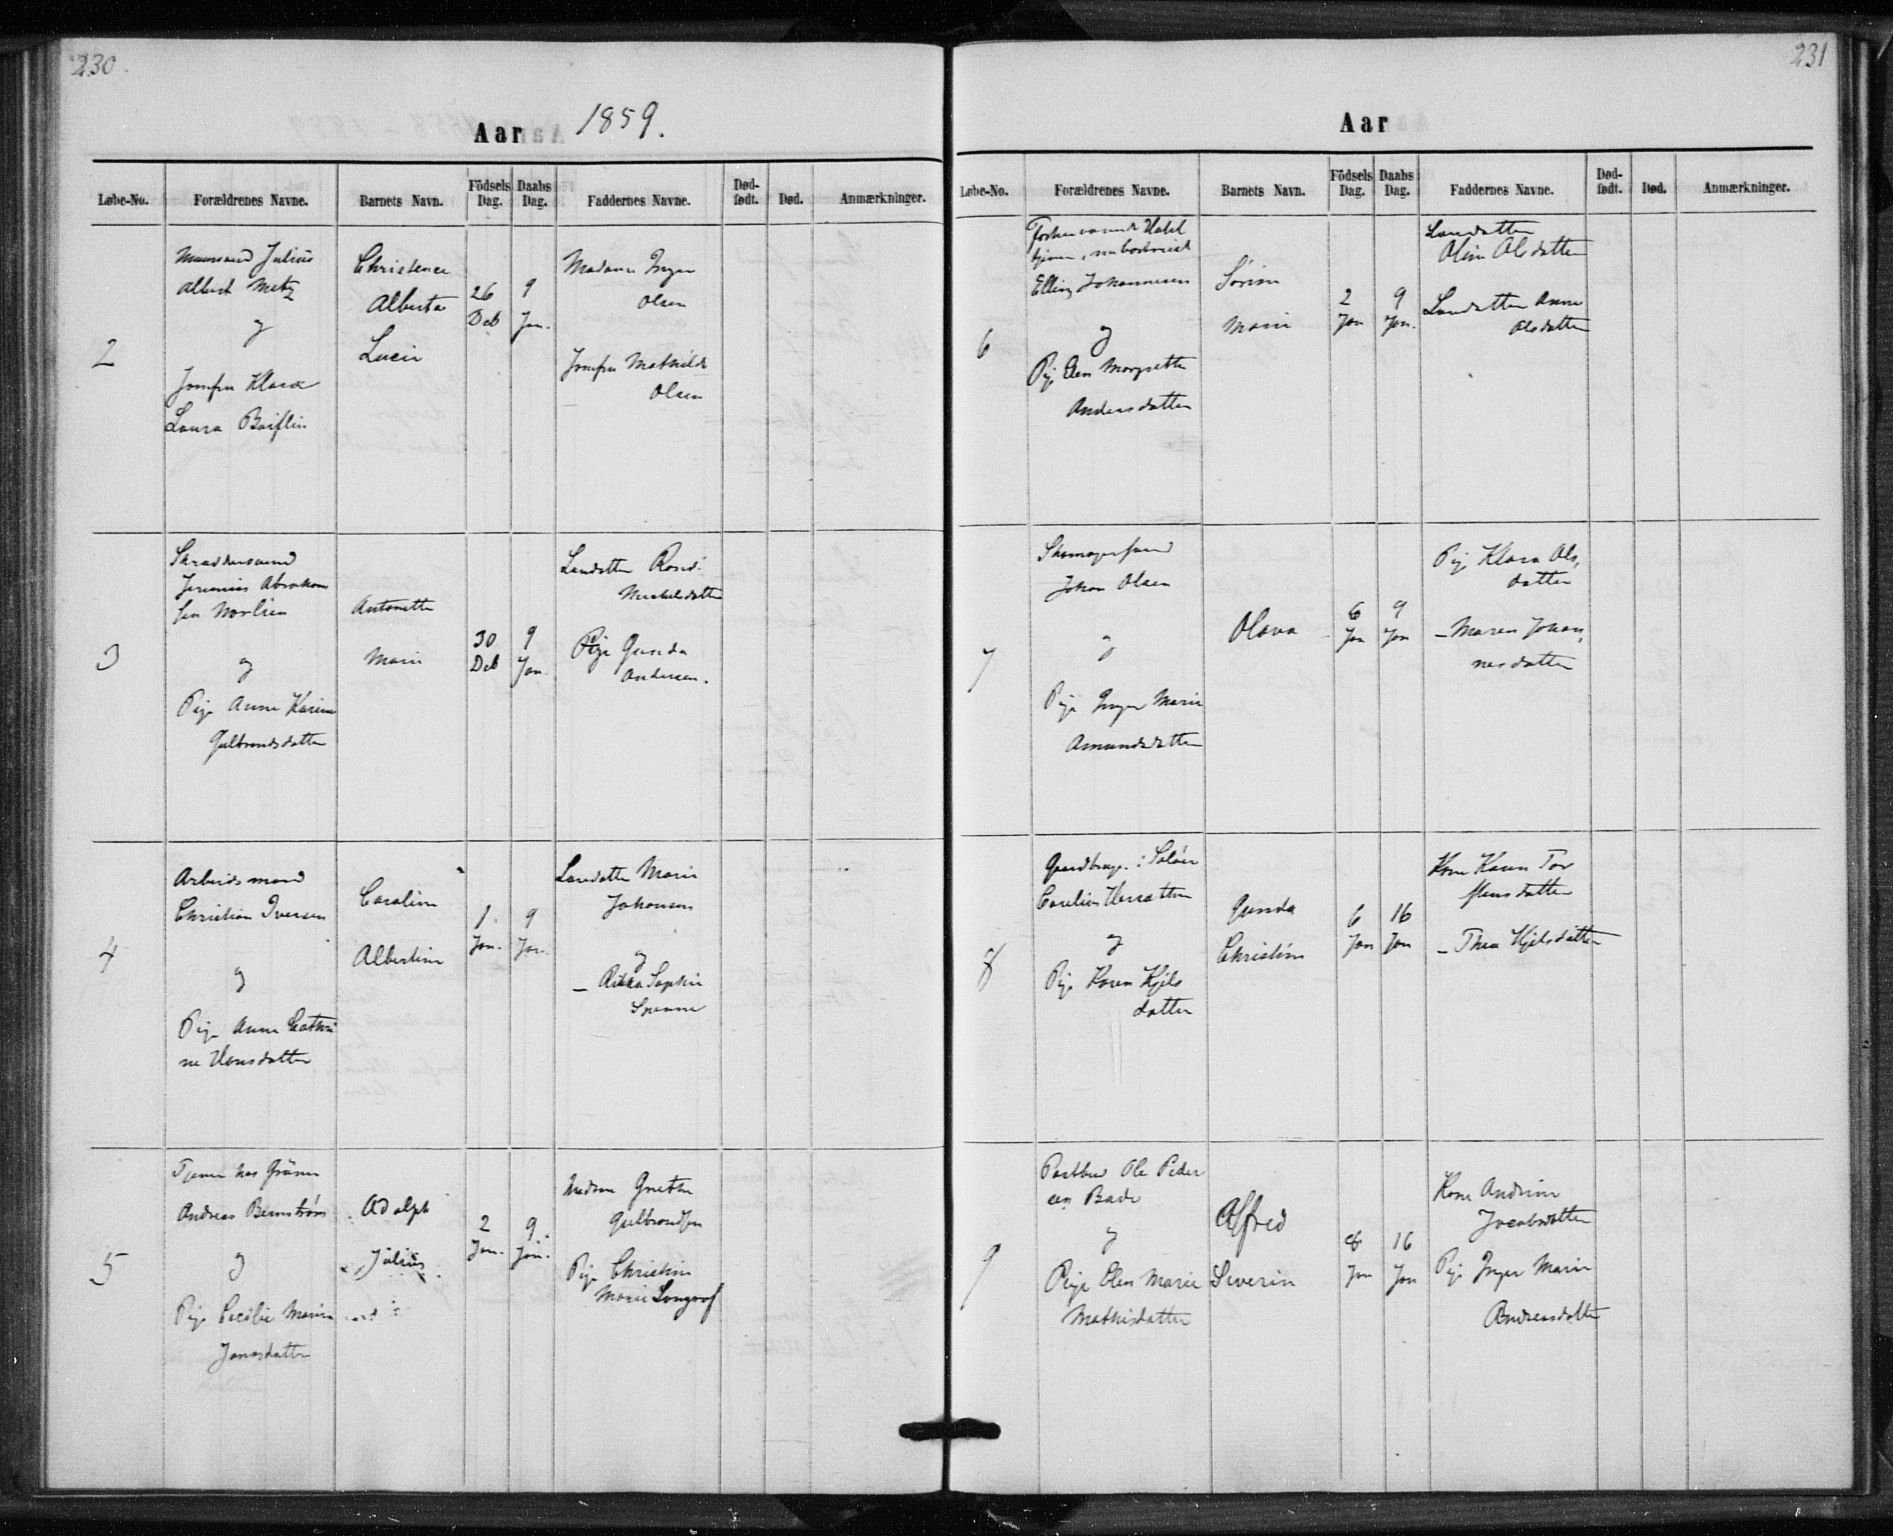 230.
Aar 1859.
Løbe-No. Forældrenes Navne. Barnets Navn. Födsels Dag. Daabs Dag. Faddernes Navne. Död-födt. Död. Anmærkninger.
2
Muursvend Julius
Albert Metz
og
Jomfru Klara
Laura
Christence
Alberta
Lucie
26
Deb
9
Jan.
Madame Inger
Olsen
Jomfru Mathilde
Olsen
3
Skræddersvend
Jeremias Abraham
sen
og
Pige Anne Karine
Gulbrandsdatter
Antonette
Marie
30
Deb
9
Jan.
Michelsdatter
Pige Gunda
Andersen.
4
Arbeidsmand
Christian Iversen
og
Pige Anne Cathri
ne Hansdatter
Caroline
Albertine
1.
Jan.
9
Jan.
Marie
Johansen
og
Sophie
5
Tjener hos
Andreas
og
Pige Cecilie Marie
Jonasdatter
Adolph
Julius
2
Jan.
9.
Jan.
Madame Grethe
Gulbrandsen
Pige Christine
Marie
231
Aar
Løbe-No. Forældrenes Navne. Barnets Navn. Födsels Dag. Daabs Dag. Faddernes Navne. Død-født. Død. Anmærkninger.
6
Elling Johannesen
og
Pige Elen Margrethe
Andersdatter
Sørine
Marie
2
Jan
9
Jan.
Oline Olsdatter
Anne
Olsdatter
7
Johan Olsen
og
Pige Inger Marie
Amundsdatter
Olava
6
Jan
9
Jan
Pige Klara Ols,
datter
– Maren Johan,
nesdatter
8
og
Pige Karen Kjels
datter
Gunda
Christine
6
Jan
16
Jan
Kone Karen Tor
stensdatter
– Thea Kjelsdatter
9
Postbud Ole Peder
sen
og
Pige Elen Marie
Mathisdatter
Alfred
Severin
8
Jan
16
Jan
Kone Andrine
Jacobsdatter
Pige Inger Marie
Andreasdatter